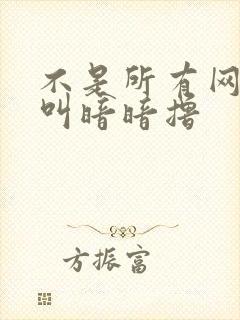 不是所有网
叫暗暗撸
方振富